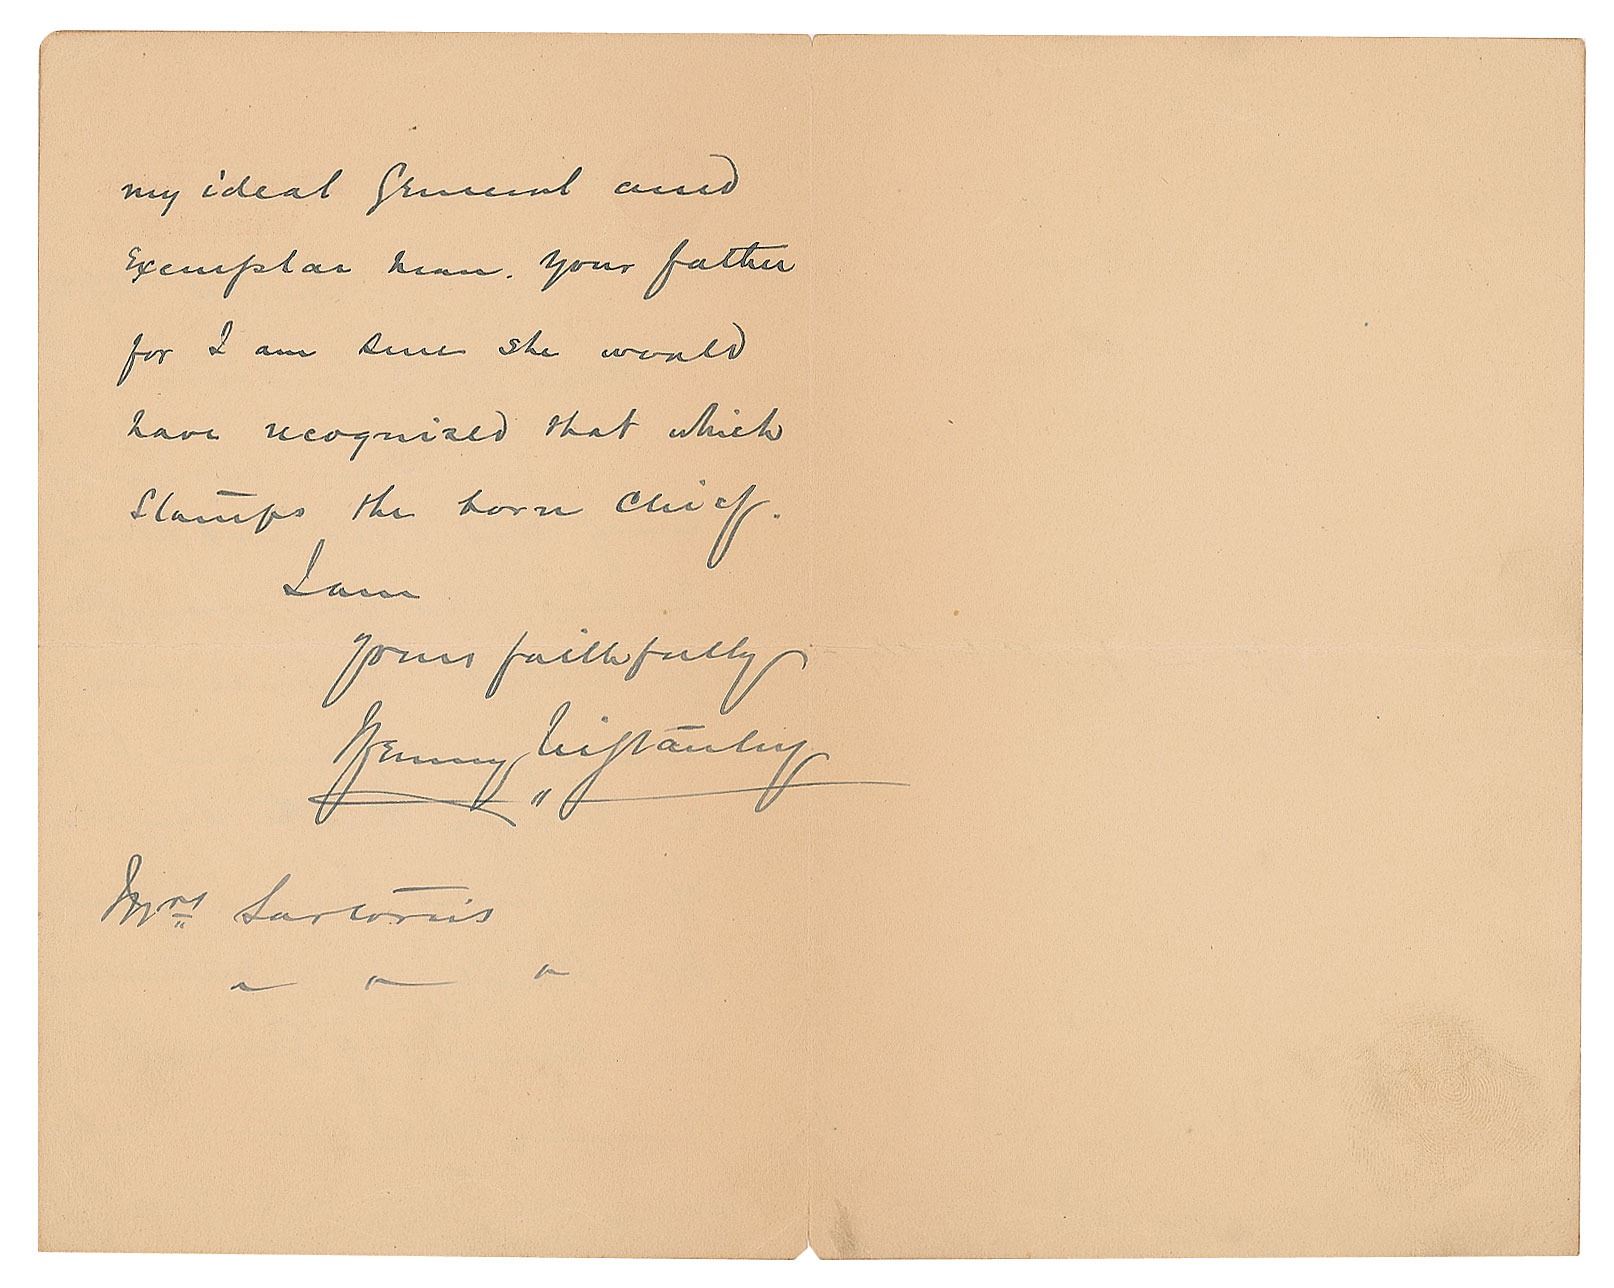 my ideal General and
Exemplar man. Your father
for I am sure she would
have recognised that which
Stamps the born Chief.
I am
Yours faithfully
Henry M Stanley
Mrs Sartoris